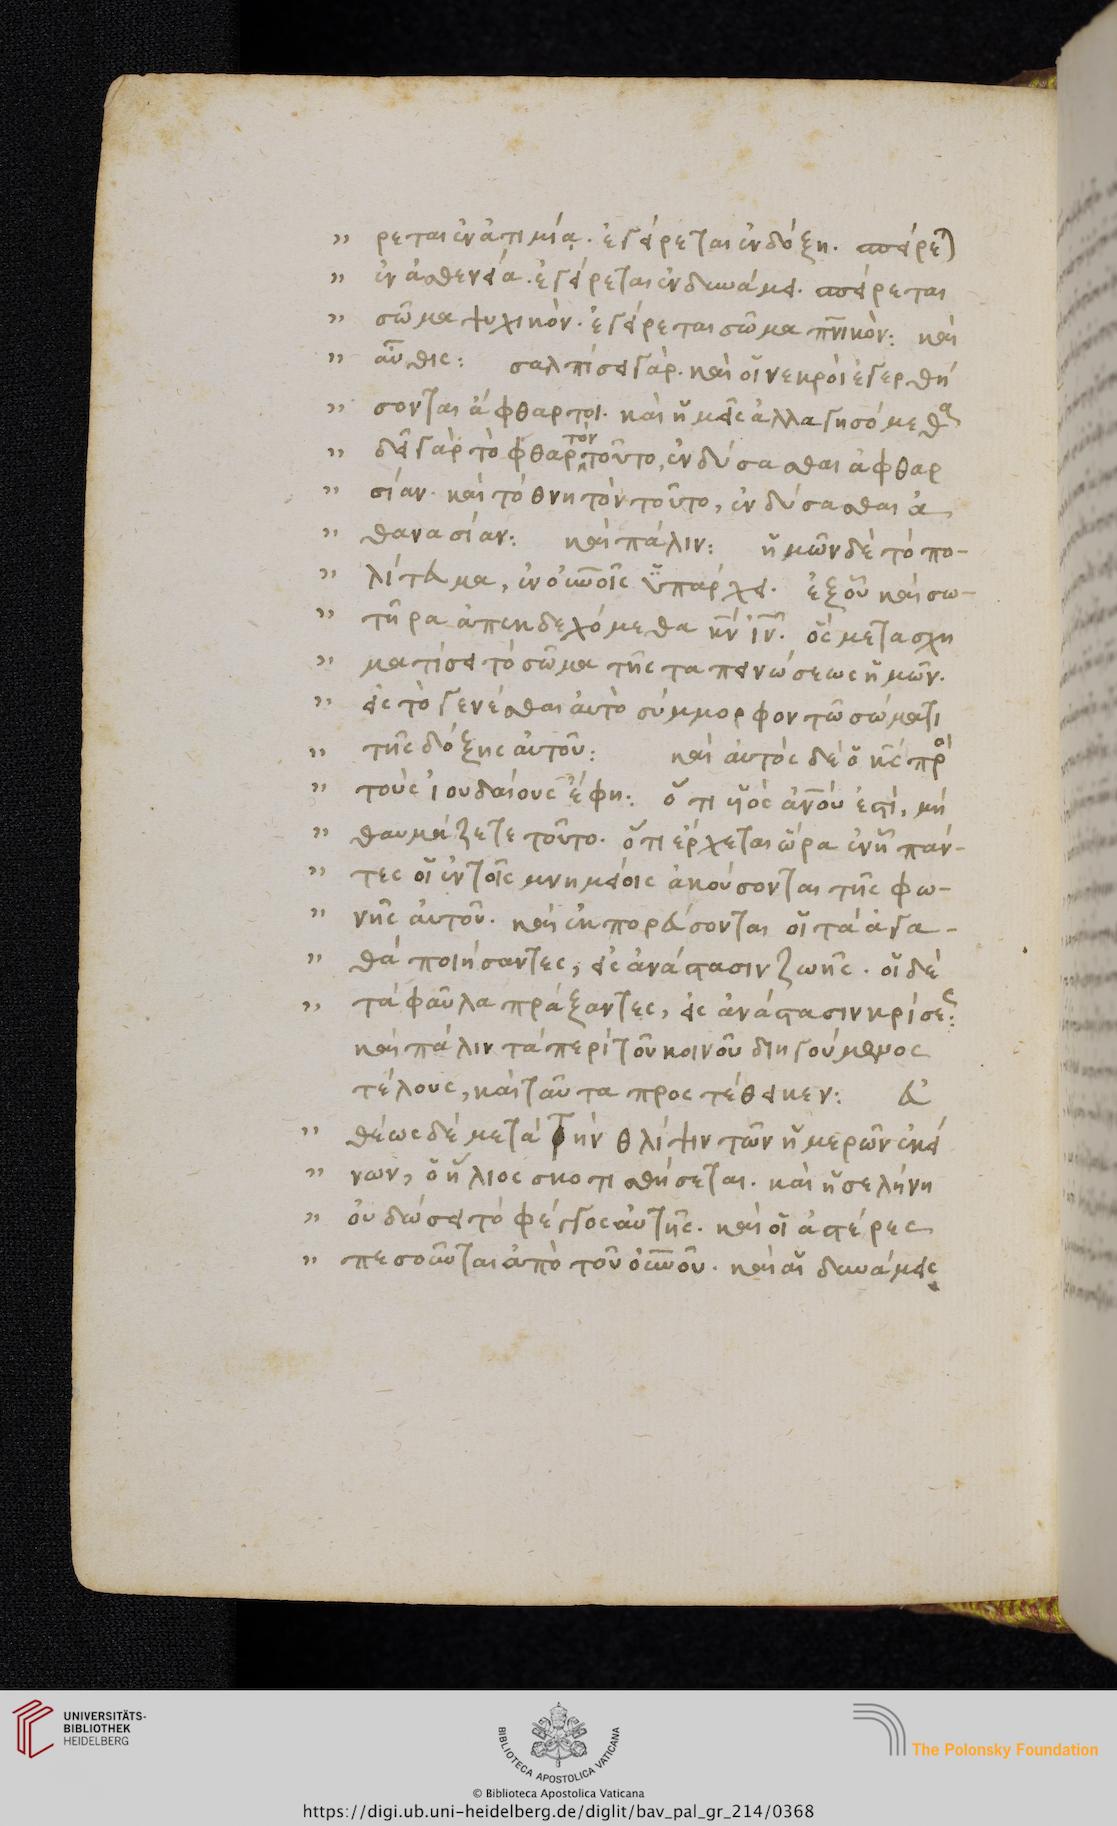 ” ρεται ἐν ἀτιμία. ἐγείρεται ἐν δόξη. σπείρετ(αι)
” ἐν ἀσθενεία. ἐγείρεται ἐν δυνάμει. σπείρεται
” σῶμα ψυχικὸν. ἐγείρεται σῶμα πν̅ικὸν: καὶ
” αὖθις: σαλπίσει γὰρ. καὶ οἱ νεκροὶ ἐγερθή
” σονται ἄφθαρτοι. καὶ ἡμεῖς ἀλλαγησόμεθα
” δεῖ γὰρ τὸ φθαρτὸν τοῦτο, ἐνδύσασθαι ἀφθαρ
” σίαν. καὶ τὸ θνητὸν τοῦτο, ἐνδύσασθαι ἀ
” θανασίαν: καὶ πάλιν: ἡμῶν δὲ τὸ πο-
” λίτευμα, ἐν οὐ̅νοῖς ὑπάρχει. ἐξ οὗ καὶ σω-
” τῆρα ἀπεκδεχόμεθα κ̅ν ἰ̅ν. ὃς μετασχη
” ματίσει τὸ σῶμα τῆς ταπεινώσεως ἡμῶν.
” εἰς τὸ γενέσθαι αὐτὸ σύμμορφον τῶ σώματι
” τῆς δόξης αὐτοῦ: καὶ αὐτὸς δὲ ὁ κ̅ς πρὸ
” τοὺς ἰουδαίους ἔφη: ὅτι υἱὸς ἀν̅ου ἐστί, μὴ
” θαυμάζετε τοῦτο. ὅτι ἔρχεται ὥρα ἐν ἧ πάν-
” τες οἱ ἐν τοῖς μνημείοις ἀκούσονται τῆς φω-
” νῆς αὐτοῦ. καὶ ἐκπορεύσονται οἱ τὰ ἀγα-
” θὰ ποιήσαντες, εἰς ἀνάστασιν ζωῆς. οἱ δὲ
” τὰ φαῦλα πράξαντες, εἰς ἀνάστασιν κρίσεως:
καὶ πάλιν τὰ περὶ τοῦ κοινοῦ διηγούμενος
τέλους, καὶ ταῦτα προστέθεικεν: εὐ
” θέως δὲ μετὰ τὴν θλίψιν τῶν ἡμερῶν ἐκεί
” νων, ὁ ἥλιος σκοτισθήσεται. καὶ ἡ σελήνη
” οὐ δώσει τὸ φέγγος αὐτῆς. καὶ οἱ ἀστέρες
” πεσοῦνται ἀπὸ τοῦ οὐ̅νοῦ. καὶ αἱ δυνάμεις
UNIVERSITÄTS-
BIBLIOTHEK
HEIDELBERG
BIBLIOTECA APOSTOLICA VATICANA
The Polonsky Foundation
© Biblioteca Apostolica Vaticana
https://digi.ub.uni-heidelberg.de/diglit/bav_pal_gr_214/0368